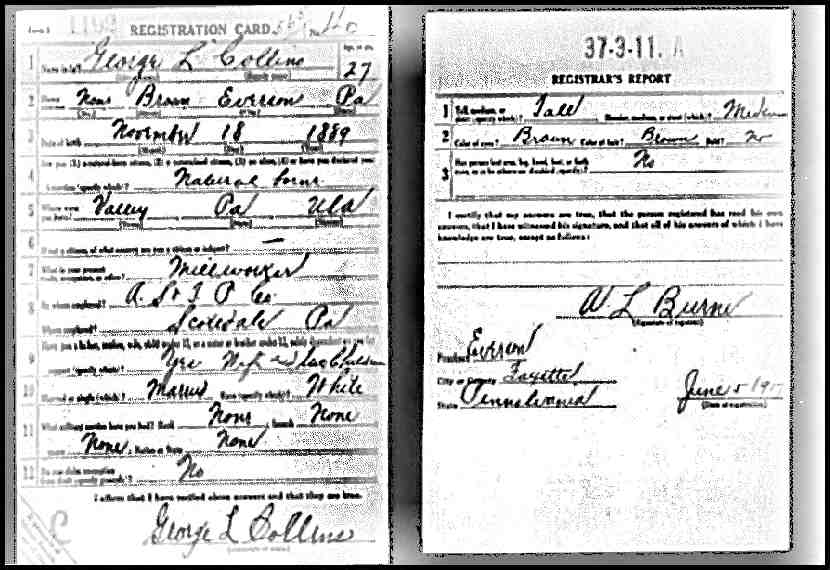 1192 REGISTRATION CARD No. 140
1 Name in full George L Collins Age, in yrs. 27
2 Home None Brown Everson Pa
3 Date of birth November 18 1889
Are you (1) a natural-born citizen, (2) a naturalized citizen, (3) an alien, (4) or have you declared your
4 intention (specify which)? Natural born
5 Where were you born? Valley Pa USA
6 If not a citizen, of what country are you a citizen or subject? —
7 What is your present trade, occupation, or office? Millworker
8 By whom employed? A. S & T P Co.
Where employed? Scottdale Pa
Have you a father, mother, wife, child under 12, or a sister or brother under 12, solely dependent on you for
9 support (specify which)? Yes Wife &
10 Married or single (which)? Married Race (specify which)? White
11 What military service have you had? Rank None branch None
years None Nation or State None
12 Do you claim exemption from draft (specify grounds)? No
I affirm that I have verified above answers and that they are true.
George L Collins
C
37-3-11. A
REGISTRAR'S REPORT
1 Tall, medium, or short (specify which)? Tall Slender, medium, or stout (which)? Medium
2 Color of eyes? Brown Color of hair? Brown Bald? No
3 Has person lost arm, leg, hand, foot, or both eyes, or is he otherwise disabled (specify)? No
I certify that my answers are true, that the person registered has read his own
answers, that I have witnessed his signature, and that all of his answers of which I have
knowledge are true, except as follows:
(Signature of registrar)
Precinct Everson
City or County Fayette
State Pennsylvania June 5 1917
(Date of registration)